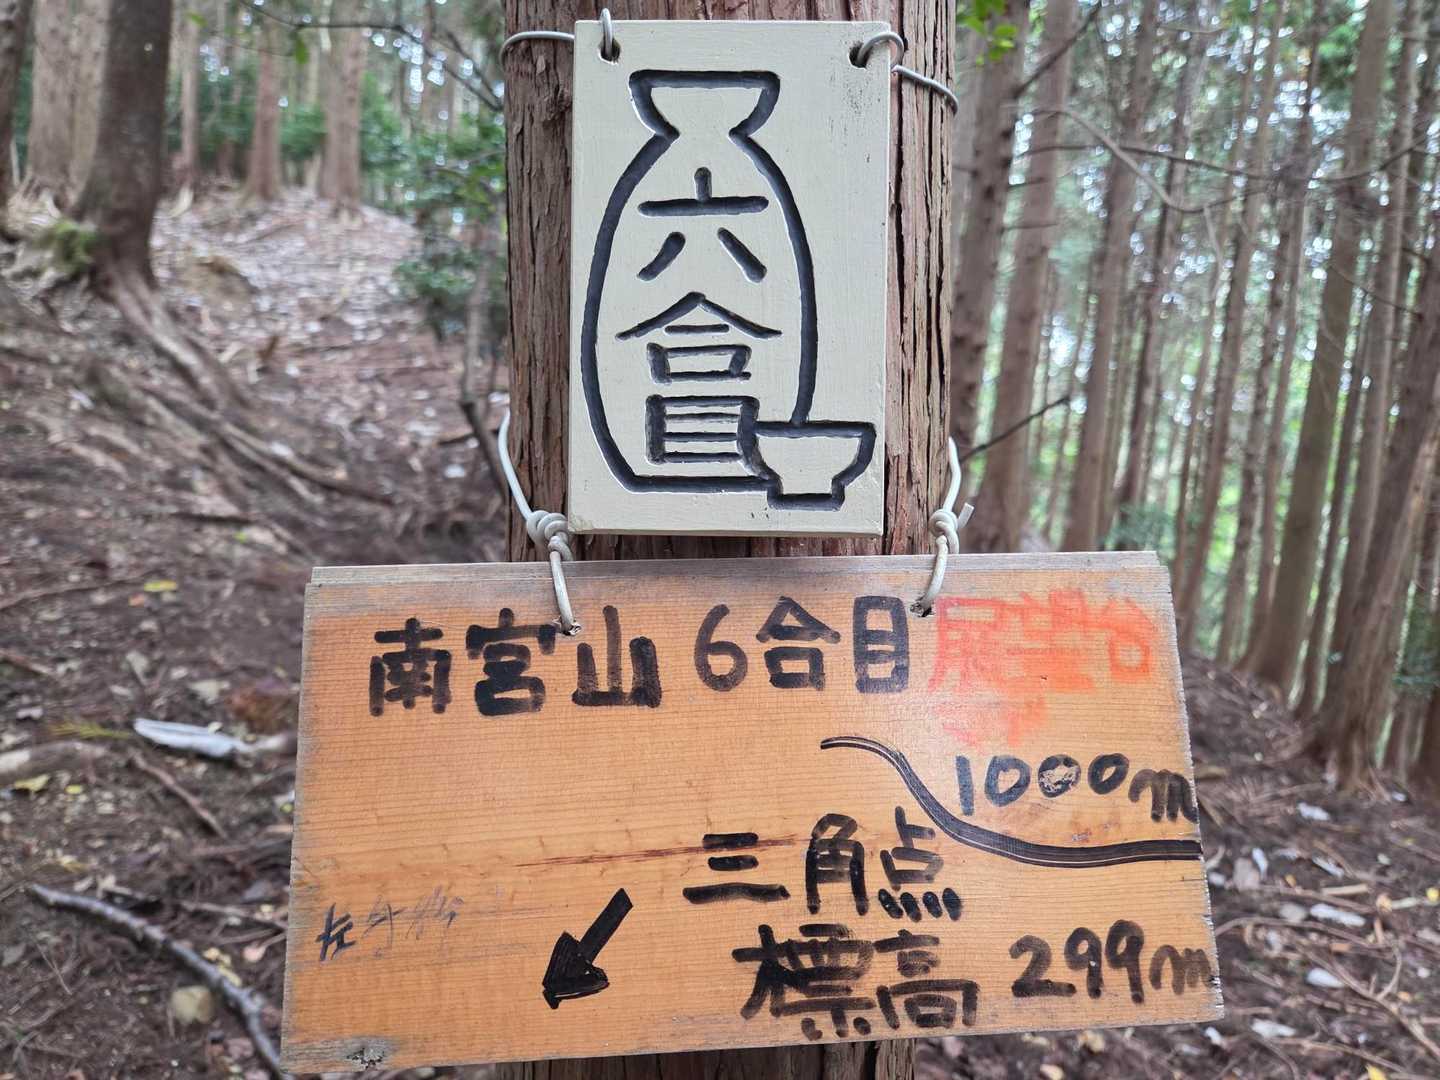 六合目
南宮山 6合目 展望台
まで
1000m
三角点
標高 299m